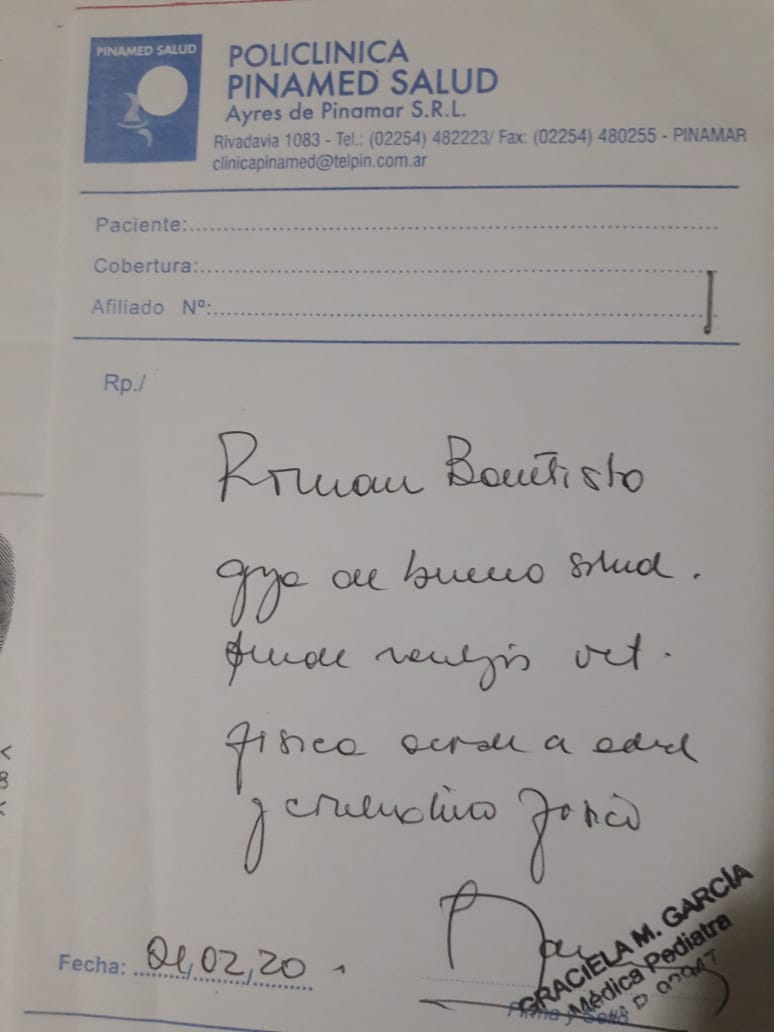 PINAMED SALUD
POLICLINICA
PINAMED SALUD
Ayres de Pinamar S.R.L.
Rivadavia 1083 - Tel.: (02254) 482223/ Fax: (02254) 480255 - PINAMAR
clinicapinamed@telpin.com.ar
Paciente:
Cobertura:
Afiliado Nº:
Rp./
Roman Bautista
goza de buena salud.
Puede realizar act.
física acorde a edad
y
Fecha: 01,02,20
GRACIELA M. GARCÍA
Médica Pediatra